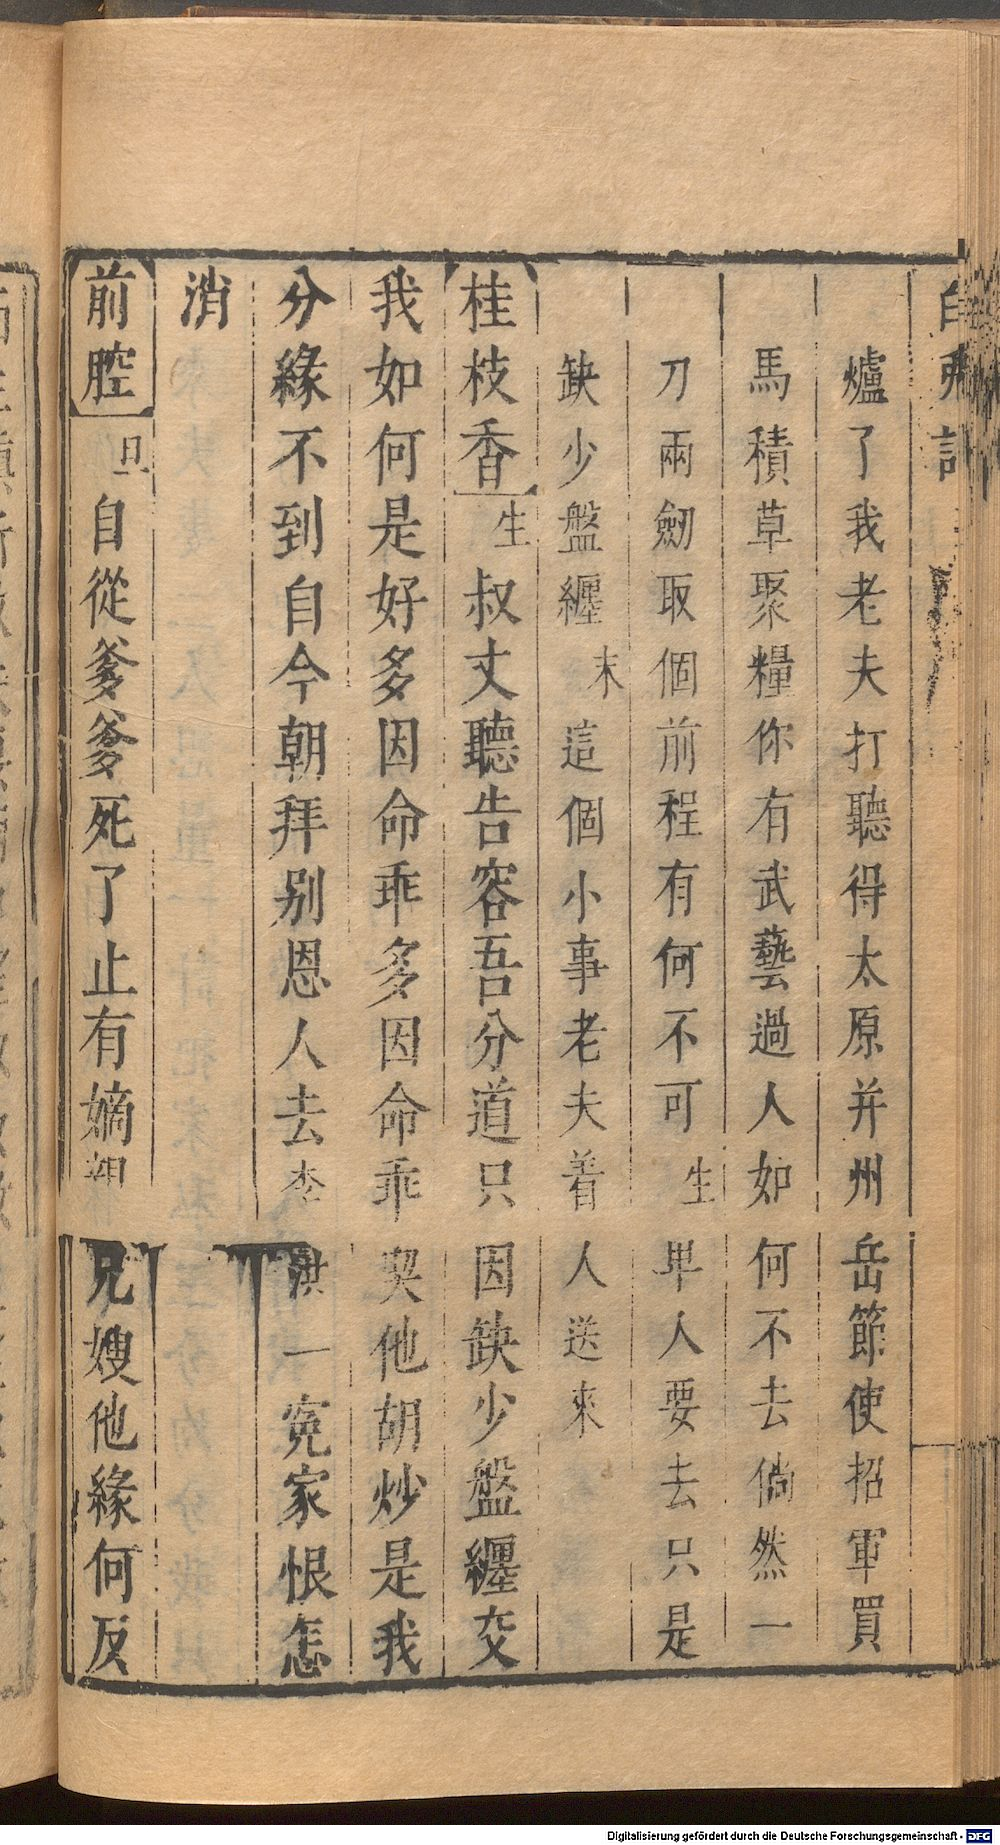 爐了我老夫打聽得太原并州岳節使招軍買
馬積草聚糧你有武藝過人如何不去倘然一
刀兩劒取個前程有何不可生畢人要去只是
缺少盤纏末這個小事老夫着人送來
桂枝香生叔丈聽告容吾分道只因缺少盤纏交
我如何是好多因命乖多因命乖契他胡炒是我
分緣不到自今朝拜别恩人去李洪一寃家恨怎
消
前腔旦自從爹爹死了止有嫡親兄嫂他緣何反
Digitalisierung gefördert durch die Deutsche Forschungsgemeinschaft - DFG